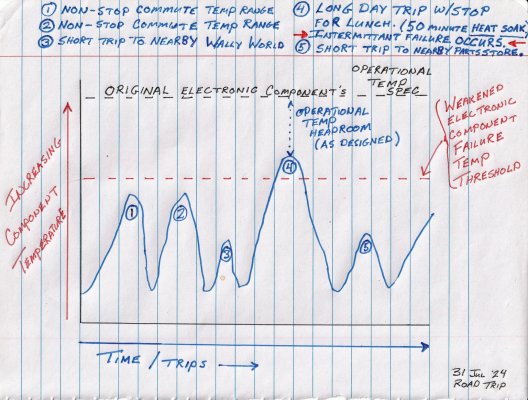 ① NON-STOP COMMUTE TEMP RANGE
② NON-STOP COMMUTE TEMP RANGE
③ SHORT TRIP TO NEARBY WALLY WORLD
④ LONG DAY TRIP W/STOP
FOR LUNCH. (50 MINUTE HEAT SOAK)
INTERMITTANT FAILURE OCCURS.
⑤ SHORT TRIP TO NEARBY PARTS STORE.
OPERATIONAL
TEMP
SPEC
ORIGINAL ELECTRONIC COMPONENT'S
OPERATIONAL
TEMP
HEADROOM
(AS DESIGNED)
WEAKENED
ELECTRONIC
COMPONENT
FAILURE
TEMP
THRESHOLD
INCREASING
COMPONENT
TEMPERATURE
①
②
③
④
⑤
TIME / TRIPS
31 JUL '24
ROAD TRIP